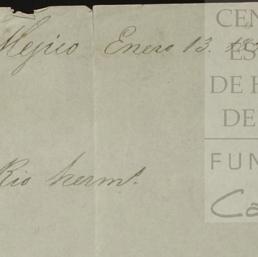 Mejico Enero 13.
Rio herm.ˢ
CEN
ES
DE H
DE
FUN
Ca